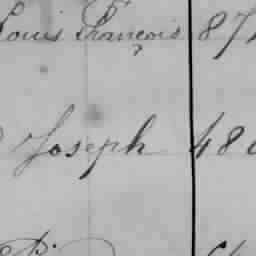 Louis François 87
Joseph 48